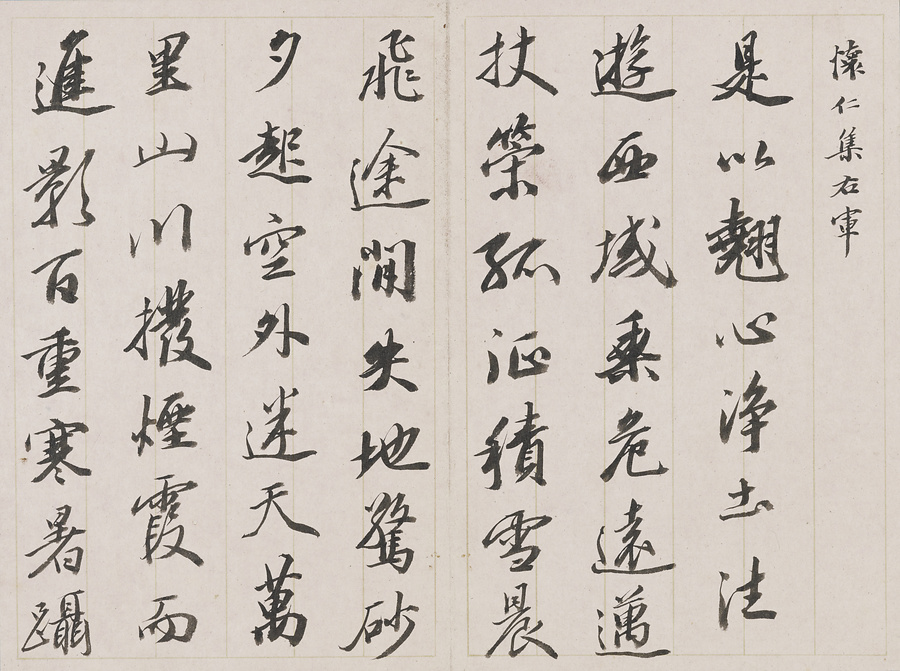 懷仁集右軍
是以翹心淨土往
遊西域乘危遠邁
杖策孤征積雪晨
飛途閒失地驚砂
夕起空外迷天萬
里山川撥煙霞而
進影百重寒暑躡